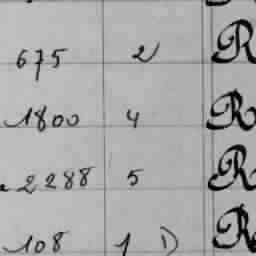 675 2 R
1800 4 R
2288 5 R
108 1 D R